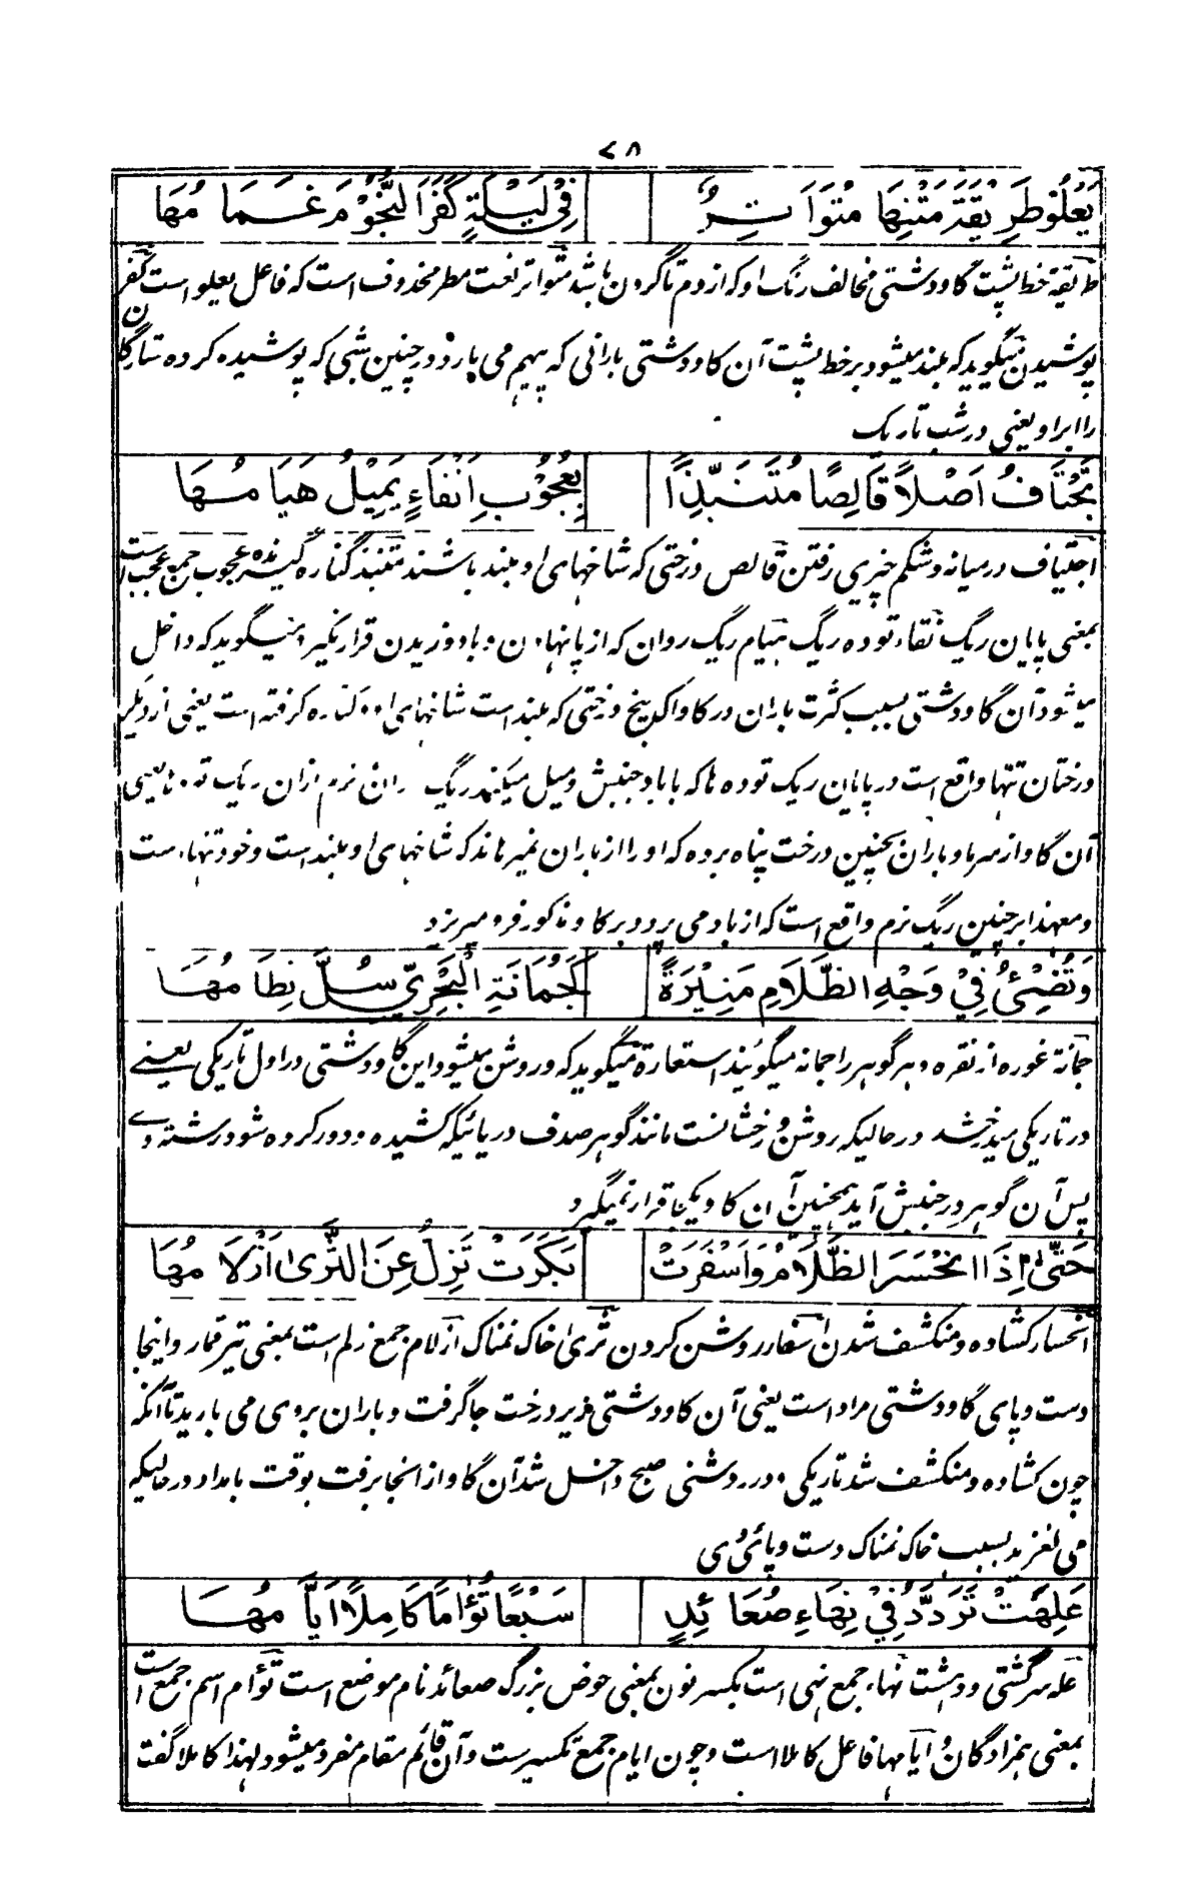 ۷۸
يَعْلُوْ طَرِيْقَةَ مَتْنِهَا مُتَوَاتِرٌ فِيْ لَيْلَةٍ كَفَرَ النُّجُوْمَ غَمَامُهَا
طریقة خط پشت گاو دشتی مخالف رنگ او که از دم تا گردن باشد متواتر نعت مطر محذوف است که فاعل یعلو است کفر
پوشیدن میگوید که بلند میشود بر خط پشت آن گاو دشتی بارانی که پیهم می بارد در چنین شبی که پوشیده کرده ستارگان
را ابر او یعنی در شب تاریک
تَجْتَافُ اَصْلاً قَالِصًا مُتَنَبِّذًا بِعُجُوْبِ اَنْقَاءٍ يَمِيْلُ هَيَامُهَا
اجتیاف در میانه و شکم چیزی رفتن قالص درختی که شاخهای او بلند باشند متنبذ کناره گیرنده عجوب جمع عجب است
بمعنی پایان ریگ نقاء توده ریگ هیام ریگ روان که از وزیدن قرار نگیرد میگوید که داخل
میشود آن گاو دشتی بسبب کثرت باران در کاواک بیخ درختی که بلند است شاخهای او کناره گرفته است یعنی از دیگر
درختان تنها واقع است در پایان ریگ توده ها که با باد جنبش و میل میکند ریگ نرم ازان ریگ یعنی
آن گاو از سرما و باران بچنین درخت پناه برده که او را از باران نمیرهاند که شاخهای او بلند است و خود تنها است
و معهذا بر چنین ریگ نرم واقع است که از باد می پرد و بر گاو مذکور فرو میریزد
وَتُضِيْئُ فِيْ وَجْهِ الظَّلَامِ مُنِيْرَةً كَجُمَانَةِ الْبَحْرِيِّ سُلَّ نِظَامُهَا
جمانة غوره از نقره و هر گوهر را جمانه میگویند استعارة میگوید که و روشن میشود این گاو دشتی در اول تاریکی یعنے
در تاریکی میدرخشد در حالیکه روشن و رخشانست مانند گوهر صدف دریائیکه کشیده و دور کرده شود رشته وے
پس آن گوهر در جنبش آید همچنین آن گاو یکجا قرار نمیگیرد
حَتّٰى اِذَا انْحَسَرَ الظَّلَامُ وَاَسْفَرَتْ بَكَرَتْ تَزِلُّ عَنِ الثَّرٰى اَزْلَامُهَا
انحسار کشاده و منکشف شدن اسفار روشن کردن ثری خاک نمناک ازلام جمع زلم است بمعنی تیر قمار و اینجا
دست و پای گاو دشتی مراد است یعنی آن گاو دشتی زیر درخت جا گرفت و باران بروی می بارید تا آنکه
چون کشاده و منکشف شد تاریکی و در روشنی صبح داخل شد آن گاو از انجا برفت بوقت بامداد در حالیکه
می لغزید بسبب خاک نمناک دست و پائ وی
عَلِهَتْ تَرَدَّدُ فِيْ نِهَاءِ صُعَائِدٍ سَبْعًا تُؤَامًا كَامِلًا اَيَّامُهَا
عله سرگشتی و دهشت نهاء جمع نهی است بکسر نون بمعنی حوض بزرگ صعائد نام موضع است توأم اسم جمع است
بمعنی همزادگان و ایامها فاعل کاملا است و چون ایام جمع تکسیر ست و آن قائم مقام مفرد میشود لهذا کاملا گفت